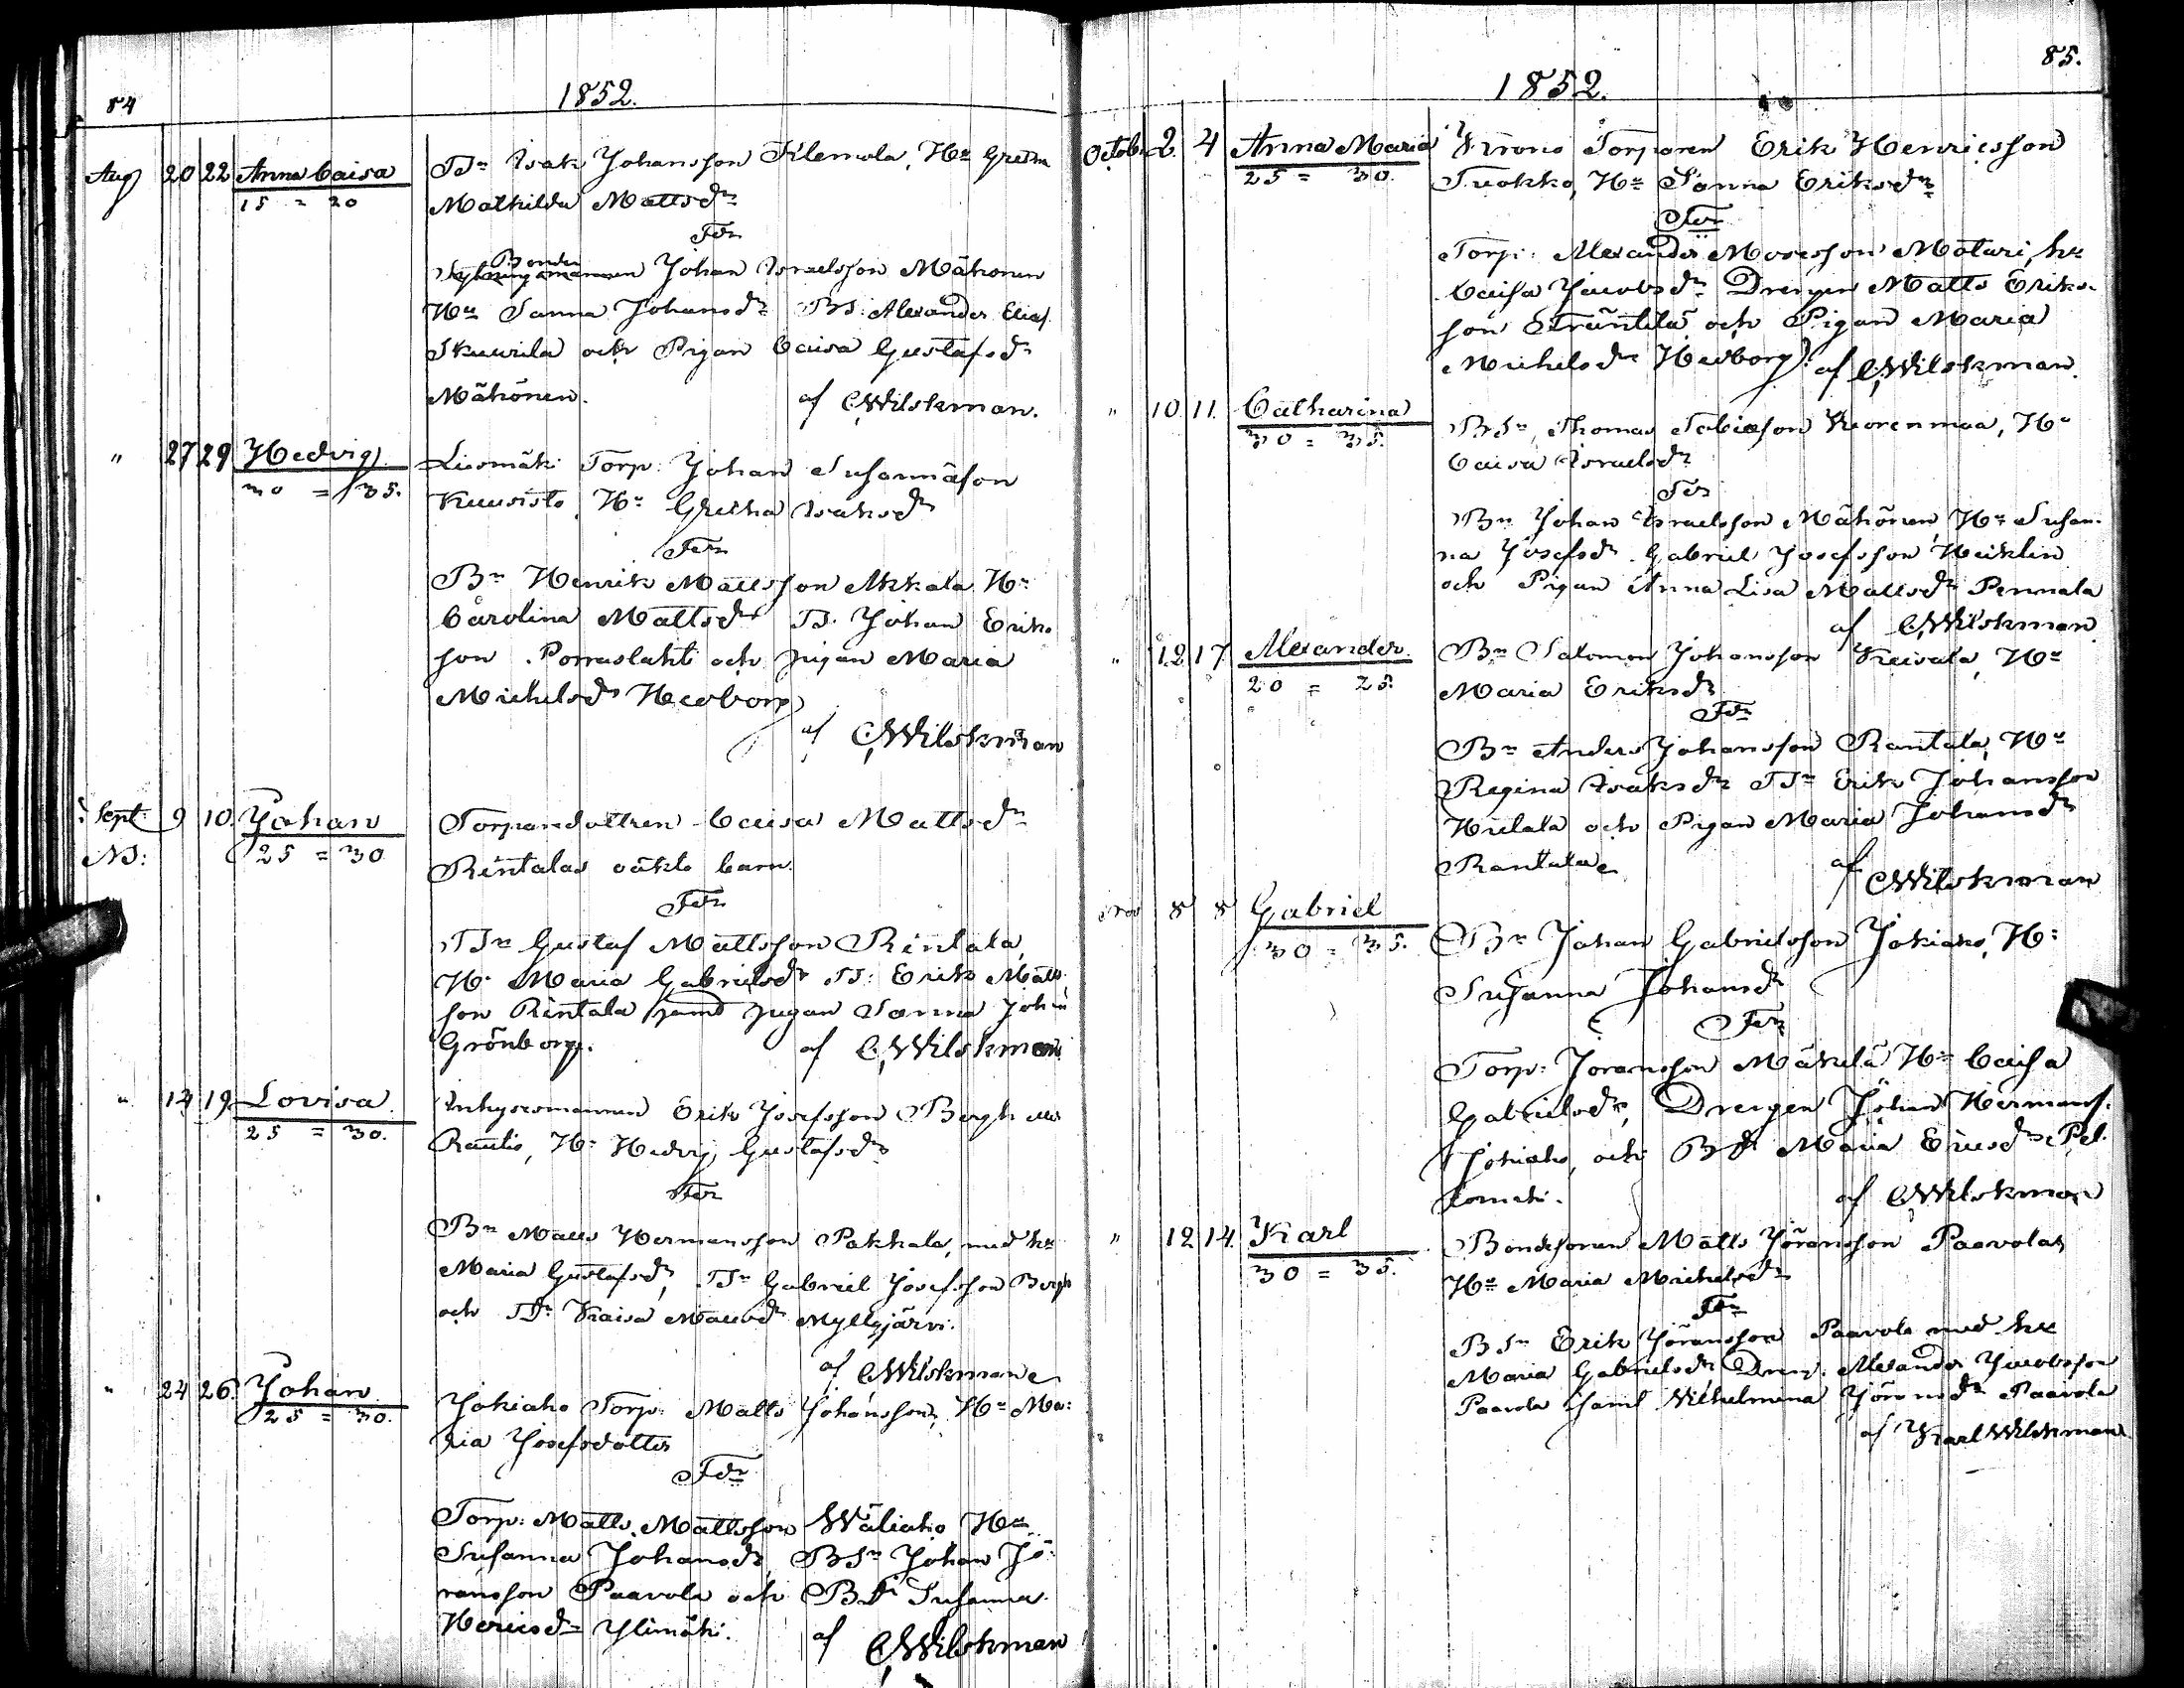 84
1852.
Aug 20 22 Anna Caisa
15 = 20
TSn Isak Johansson Klemola, Hu Gretha
Mathilda Mattsdr
Fdr
Bonde
Johan Israelsson Mähönen
Hu Sanna Johansdr BS: Alexander Elias
Skuurila och Pigan Caisa Gustafsdr
Mähönen.
af CWilskman.
" 27 29 Hedvig
30 = 35.
Liesmäki Torp: Johan Susannäson
Kuusisto, Hu Gretha Isaksdr
Fdr
Bn Henrik Mattsson Akkala Hu
Carolina Mattsdr TS. Johan Eriks
son Porraslahti och pigan Maria
Michelsdr Hedborg
af CWilskman
Sept: 9 10. Johan
NB: 25 = 30
Torparedottren Caisa Mattsdr
Rintalas oäkta barn.
Fdr
TSn Gustaf Mattsson Rintala,
Hu Maria Gabrielsdr TS: Erik Matts
son Rintala samt pigan Sanna Johan
Grönborg.
af CWilskman
" 14 19 Lovisa
25 = 30.
Inhysesmannen Erik Josefsson Bergh
Rautio, Hu Hedvig Gustafsdr
Fdr
Bn Matts Hermansson Pakkala, med hu
Maria Gustafsdr, TSn Gabriel Josefsson Bergh
och TDr Kaisa Mattsdr Myllyjärvi.
af CWilskman
" 24 26. Johan
25 = 30.
Jokiaho Torp: Matts Johansson, Hu Ma:
ria Josefsdotter
Fdr
Torp: Matts Mattsson Wäliaho Hu
Susanna Johansdr, BSn Johan Jö:
ransson Paavola och BDr Susanna
Henrisdr Ylimäki.
af CWilskman
85.
1852.
Octob. 2. 4 Anna Maria
25 = 30.
Krono Torparen Erik Henricsson
Tuokko, Hu Sanna Eriksdr
Fdr
Torp: Alexander Mosesson Motari, hu
Caisa Jacobsdr Drengen Matts Eriks-
son Sträntilä och Pigan Maria
Michelsdr Hedborg.
af CWilskman.
" 10 11. Catharina
30 = 35.
BSn Thomas Tobiasson Kuorenmaa, Hu
Caisa Israelsdr
Fdr
Bn Johan Israelsson Mähönen, Hu Susan-
na Josefsdr Gabriel Josefsson Heiklin
och Pigan Anna Lisa Mattsdr Pennala
af CWilskman
" 12 17 Alexander.
20 = 25.
Bn Salomon Johansson Keisala, Hu
Maria Eriksdr
Fdr
Bn Anders Johansson Rantala, Hu
Regina Isaksdr TSn Erik Johansson
Hietala och Pigan Maria Johansdr
Rantala
af CWilskman
Nov 8 8 Gabriel
30 = 35.
Bn Johan Gabrielsson Jokiaho, Hu
Susanna Johansdr
Fdr
Torp: Joransson Mäkelä Hu Caisa
Gabrielsdr, Drengen Johan Hermans.
Jokiaho, och BDr Maria Eriesdr Pel
tomäki.
af CWilskman
" 12 14. Karl
30 = 35.
Bondesonen Matts Jöransson Paavola,
Hu Maria Michelsdr
Fdr
BSn Erik Jöransson Paavola med hu
Maria Gabrielsdr Dreng. Alexander Jacobsson
Paavola samt Wilhelmina Jöransdr Paavola
af Karl Wilskman